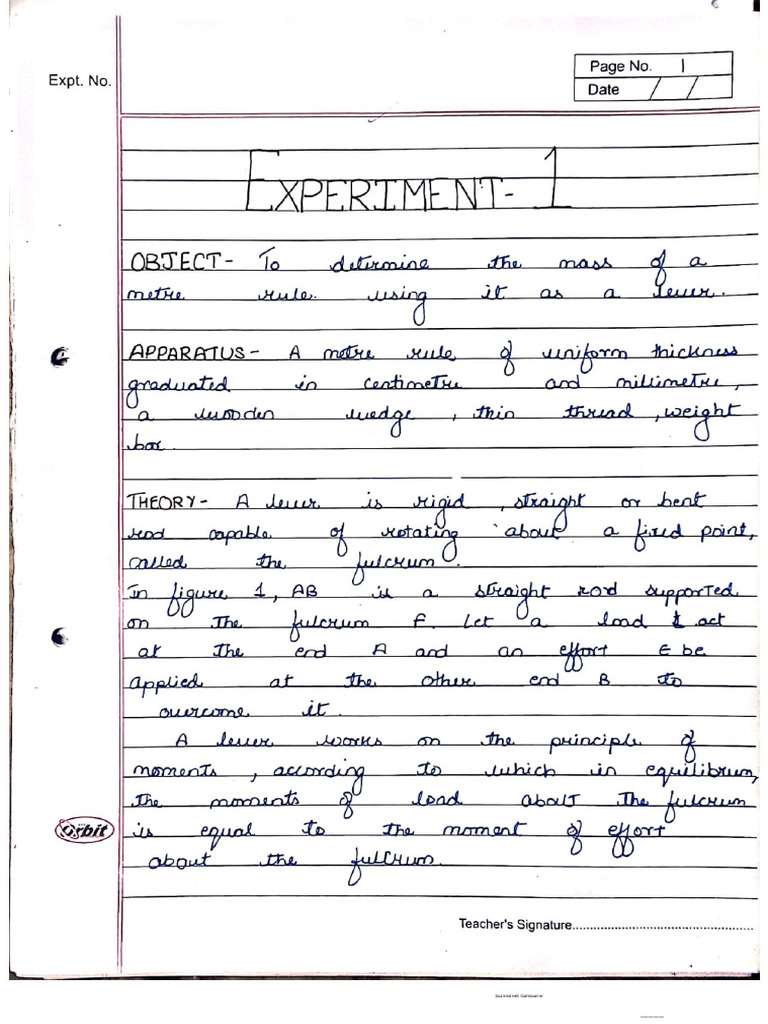 Expt. No.
Page No. 1
Date / /
EXPERIMENT- 1
OBJECT- To determine the mass of a
metre rule. using it as a lever.
APPARATUS- A metre rule of uniform thickness
graduated in centimetre and millimetre,
a wooden wedge, thin thread, weight
box.
THEORY- A lever is rigid, straight or bent
rod capable of rotating about a fixed point,
called the fulcrum.
In figure 1, AB is a straight rod supported
on the fulcrum F. Let a load L act
at the end A and an effort E be
applied at the other end B to
overcome it.
A lever works on the principle of
moments, according to which in equilibrum,
the moments of load about the fulcrum
is equal to the moment of effort
about the fulcrum.
Orbit
Teacher's Signature
Scanned with CamScanner